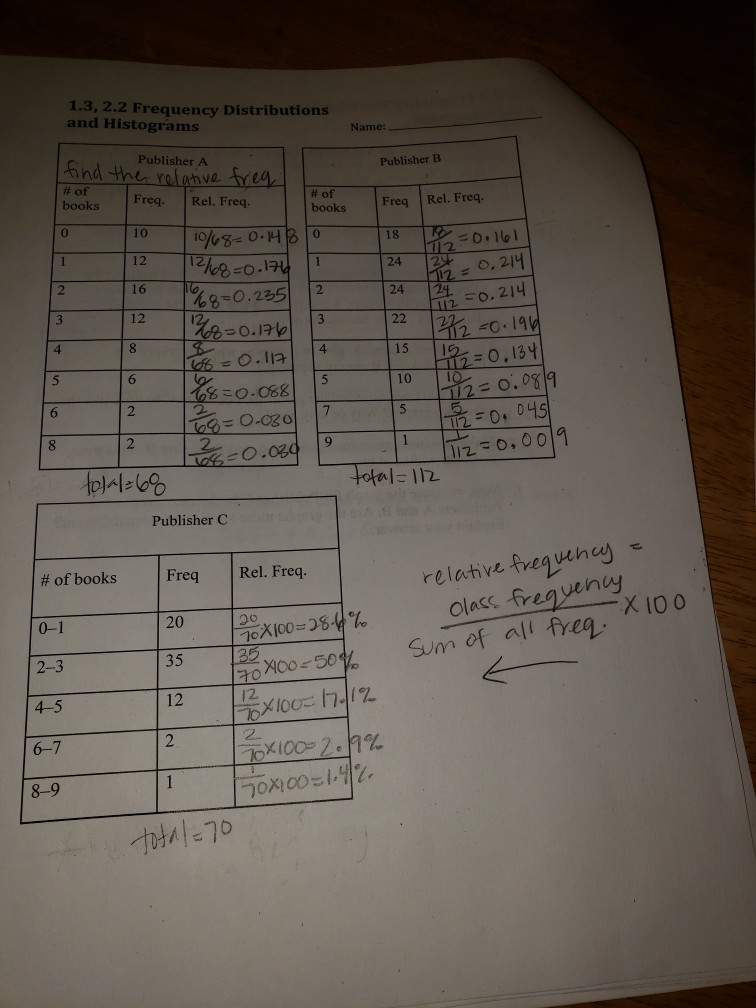 1.3, 2.2 Frequency Distributions
and Histograms
Name:
Publisher A
find the relative freq
# of books Freq. Rel. Freq.
0 10 10/68=0.148
1 12 12/68=0.176
2 16 16/68=0.235
3 12 12/68=0.176
4 8 8/68=0.117
5 6 6/68=0.088
6 2 2/68=0.030
8 2 2/68=0.030
total=68
Publisher B
# of books Freq Rel. Freq.
0 18 18/112=0.161
1 24 24/112=0.214
2 24 24/112=0.214
3 22 22/112=0.196
4 15 15/112=0.134
5 10 10/112=0.089
7 5 5/112=0.045
9 1 1/112=0.009
total=112
Publisher C
# of books Freq Rel. Freq.
0–1 20 20/70X100=28.6%
2–3 35 35/70X100=50%
4–5 12 12/70X100=17.1%
6–7 2 2/70X100=2.9%
8–9 1 1/70X100=1.4%
total=70
relative frequency =
class frequency
X 100
Sum of all freq.